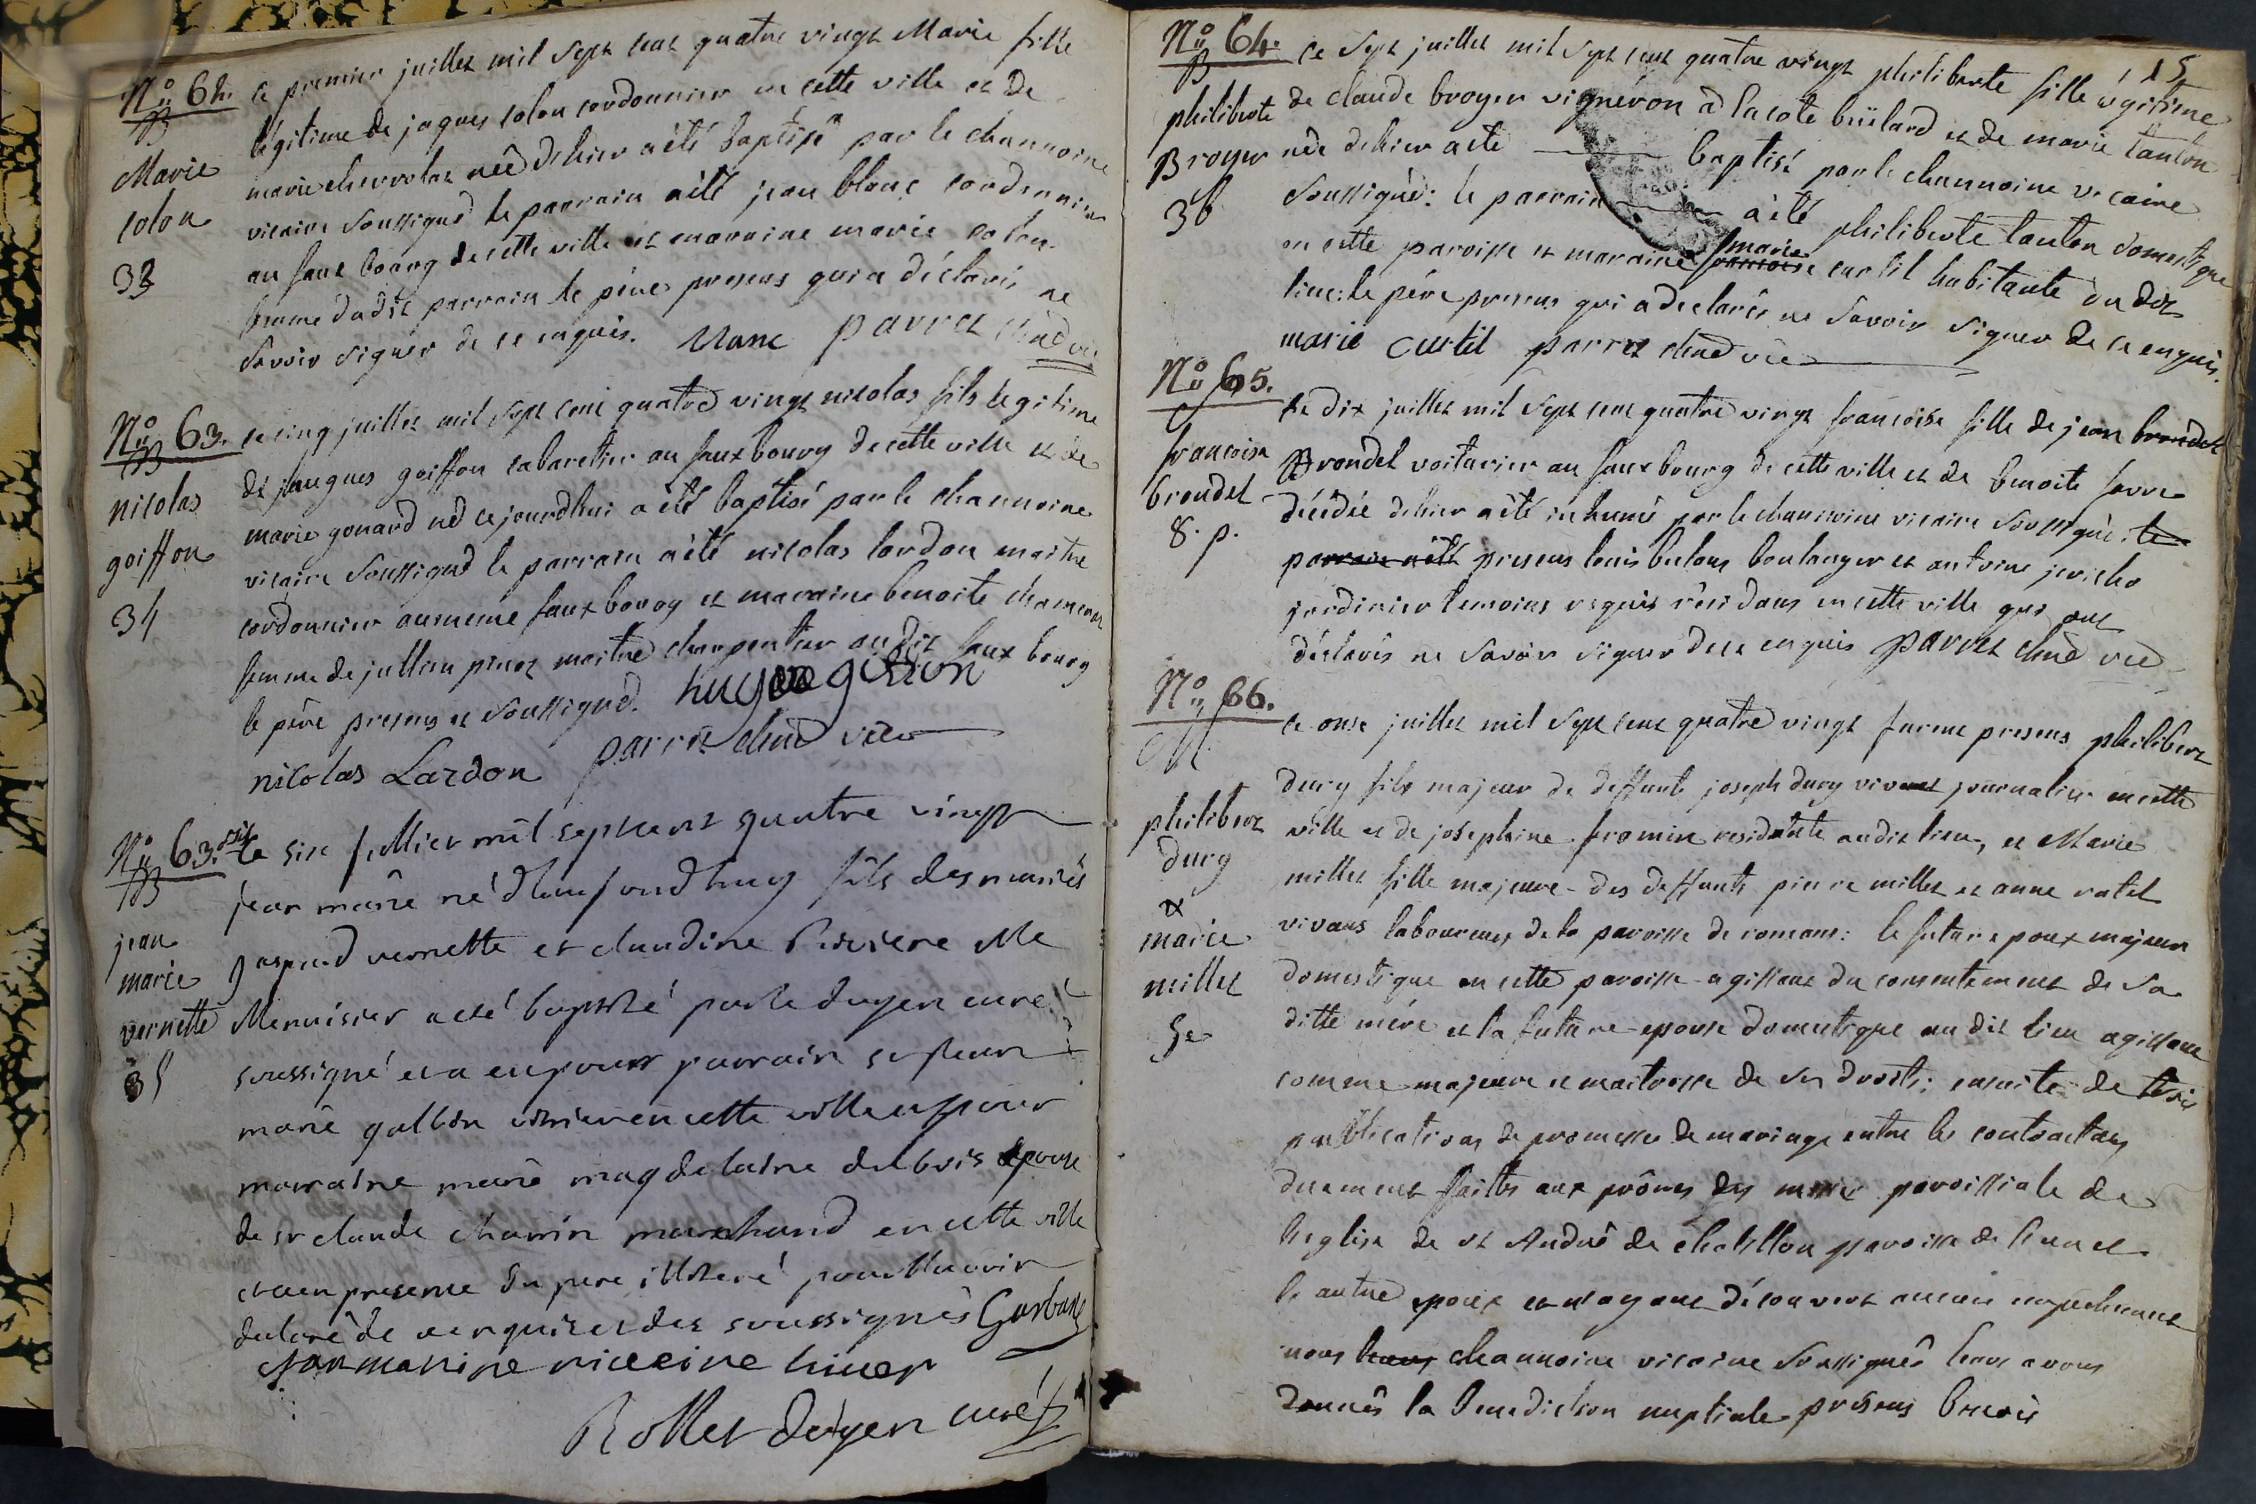 No 62.
B
Marie
colon
33
ce premier juillet mil sept cent quatre vingt Marie fille
légitime de jaques colon cordonnier en cette ville et de
marie née dehier a été baptisé par le channoine
vicaire soussigné le parrain a été jean blanc cordonnier
au faux bourg de cette ville et maraine marie colon
femme dudit parrain le père presens qui a déclaré ne
savoir signer de ce enquis. blanc parret chnê vic
No 63.
B
nicolas
goiffon
34
ce cinq juillet mil sept cent quatre vingt nicolas fils legitime
de hugues goiffon cabaretier au faux bourg de cette ville et de
marie gonard né ce jourdhui a été baptisé par le channoine
vicaire soussigné le parrain a été nicolas lardon maitre
cordonnier au meme faux bourg et maraine benoite
femme de jullien maitre charpentier au dit faux bourg
le père presens et soussigné. hugue goiffon
nicolas Lardon parret chnê vic
No 63. bis
B
jean
marie
vernette
35
le six juillet mil sept cent quatre vingt
jean marie né d'aujourdhuy fils des mariés
gaspard vernette et claudine Riviere Me
Menuisier a eté baptisé par le doyen curé
soussigné et a eu pour parrain sr jean
marie en cette ville et pour
marraine marie magdelaine dubois epouse
de sr claude marchand en cette ville
et en presence du pere illiteré pour l'avoir
declaré de ce enquis et des soussignés
Rollet doyen curé
15
No 64.
B
philiberte
Broyer
36
ce sept juillet mil sept cent quatre vingt philiberte fille légitime
de claude broyer vigneron à la cote et de marie tanton
née dehier a été baptisé par le channoine vicaire
soussigné: le parrain a été philiberte tanton domestique
en cette paroisse et maraine marie curtil habitante du dit
lieu: le père presens qui a declaré ne savoir signer de ce enquis.
marie curtil parret chnê vic
No 65.
francoise
brondel
8. p.
le dix juillet mil sept cent quatre vingt francoise fille de jean brondel
Brondel voiturier au faux bourg de cette ville et de benoite
décédée dehier a été inhumé par le channoine vicaire soussigné: le
parrain a été presens louis boulanger et antoine jericho
jardinier temoins requis residans en cette ville qui ont
déclarés ne savoir signer de ce enquis parret chnê vic
No 66.
M.
philibert
dury
&
marie
millet
ce onse juillet mil sept cent quatre vingt furent presens philibert
dury fils majeur de deffunt joseph dury vivant journalier en cette
ville et de josephine fromin residente audit lieu, et Marie
millet fille majeure des deffunts pierre millet et anne ratel
vivans laboureurs de la paroisse de romans: le futur epoux majeur
domestique en cette paroisse agissant du consentement de sa
ditte mére et la future epouse domestique au dit lieu agissant
comme majeure et maitresse de ses droits: ensuite de trois
publications de promesses de mariage entre les contractans
duement faittes aux prônes des messes paroissiale de
l'eglise de st André de chatillon paroisse de l'un et
l'autre epoux et n'ayant découvert aucun empechement
nous leurs channoine vicaire soussigné leur avons
donnés la benediction nuptiale presens